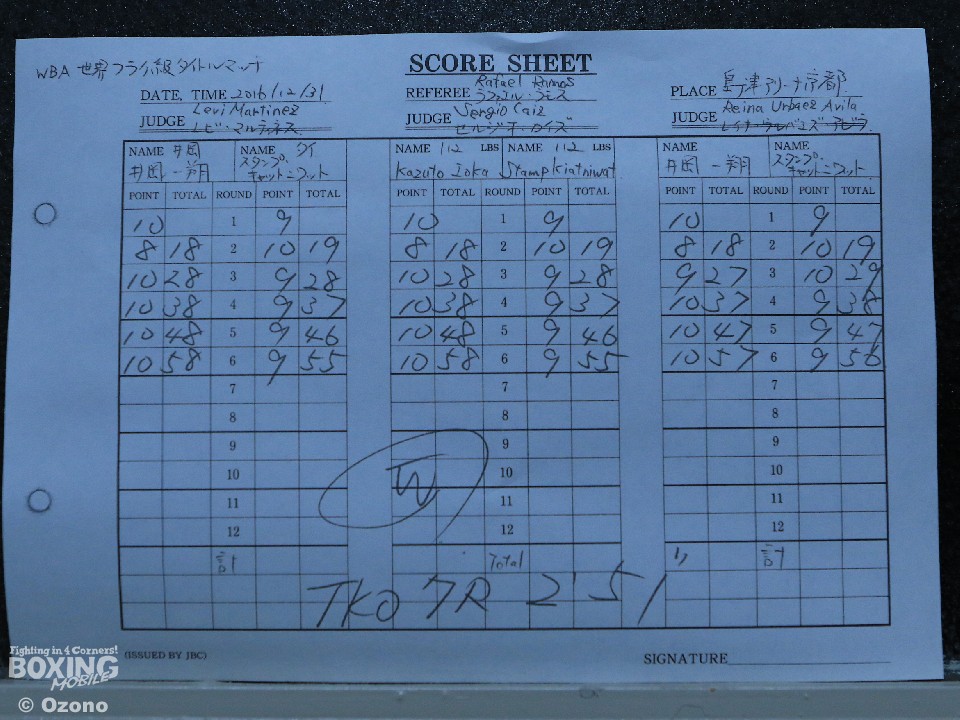 WBA 世界フライ級タイトルマッチ
SCORE SHEET
DATE, TIME 2016/12/31
REFEREE Rafael Ramos
ラファエル・ラモス
PLACE 島津アリーナ京都
JUDGE Levi Martinez
レビ・マルティネス
JUDGE Sergio Caiz
セルジオ・カイズ
JUDGE Reina Urbaez Avila
NAME 井岡 NAME タイ
井岡 一翔 スタンプ・キャットニワット
NAME 112 LBS NAME 112 LBS
Kazuto Ioka Stamp Kiatniwat
NAME NAME
井岡 一翔 スタンプ・キャットニワット
POINT TOTAL ROUND POINT TOTAL POINT TOTAL ROUND POINT TOTAL POINT TOTAL ROUND POINT TOTAL
10 1 9 10 1 9 10 1 9
8 18 2 10 19 8 18 2 10 19 8 18 2 10 19
10 28 3 9 28 10 28 3 9 28 9 27 3 10 29
10 38 4 9 37 10 38 4 9 37 10 37 4 9 38
10 48 5 9 46 10 48 5 9 46 10 47 5 9 47
10 58 6 9 55 10 58 6 9 55 10 57 6 9 56
7 7 7
8 8 8
9 9 9
10 W 10 10
11 11 11
12 12 12
計 Total 計
TKO 7R 2'51
(ISSUED BY JBC)
SIGNATURE
Fighting in 4 Corners!
BOXING
MOBILE
© Ozono